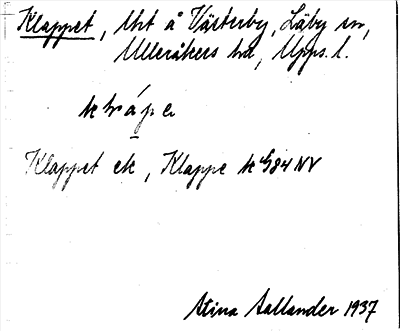 Klappet, Uht å Västerby, Läby sn,
Ulleråkers hd, Upps. l.
Klappet ek, Klappe k G84 NV
Stina Aallander 1937